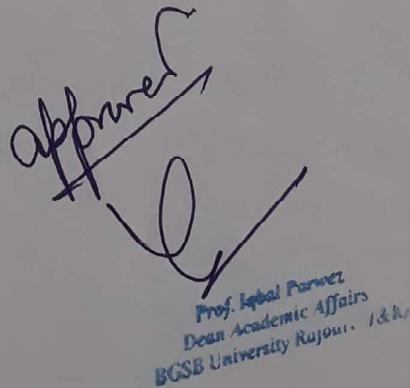 approved
Prof. Iqbal Parwez
Dean Academic Affairs
BGSB University Rajouri. J&K